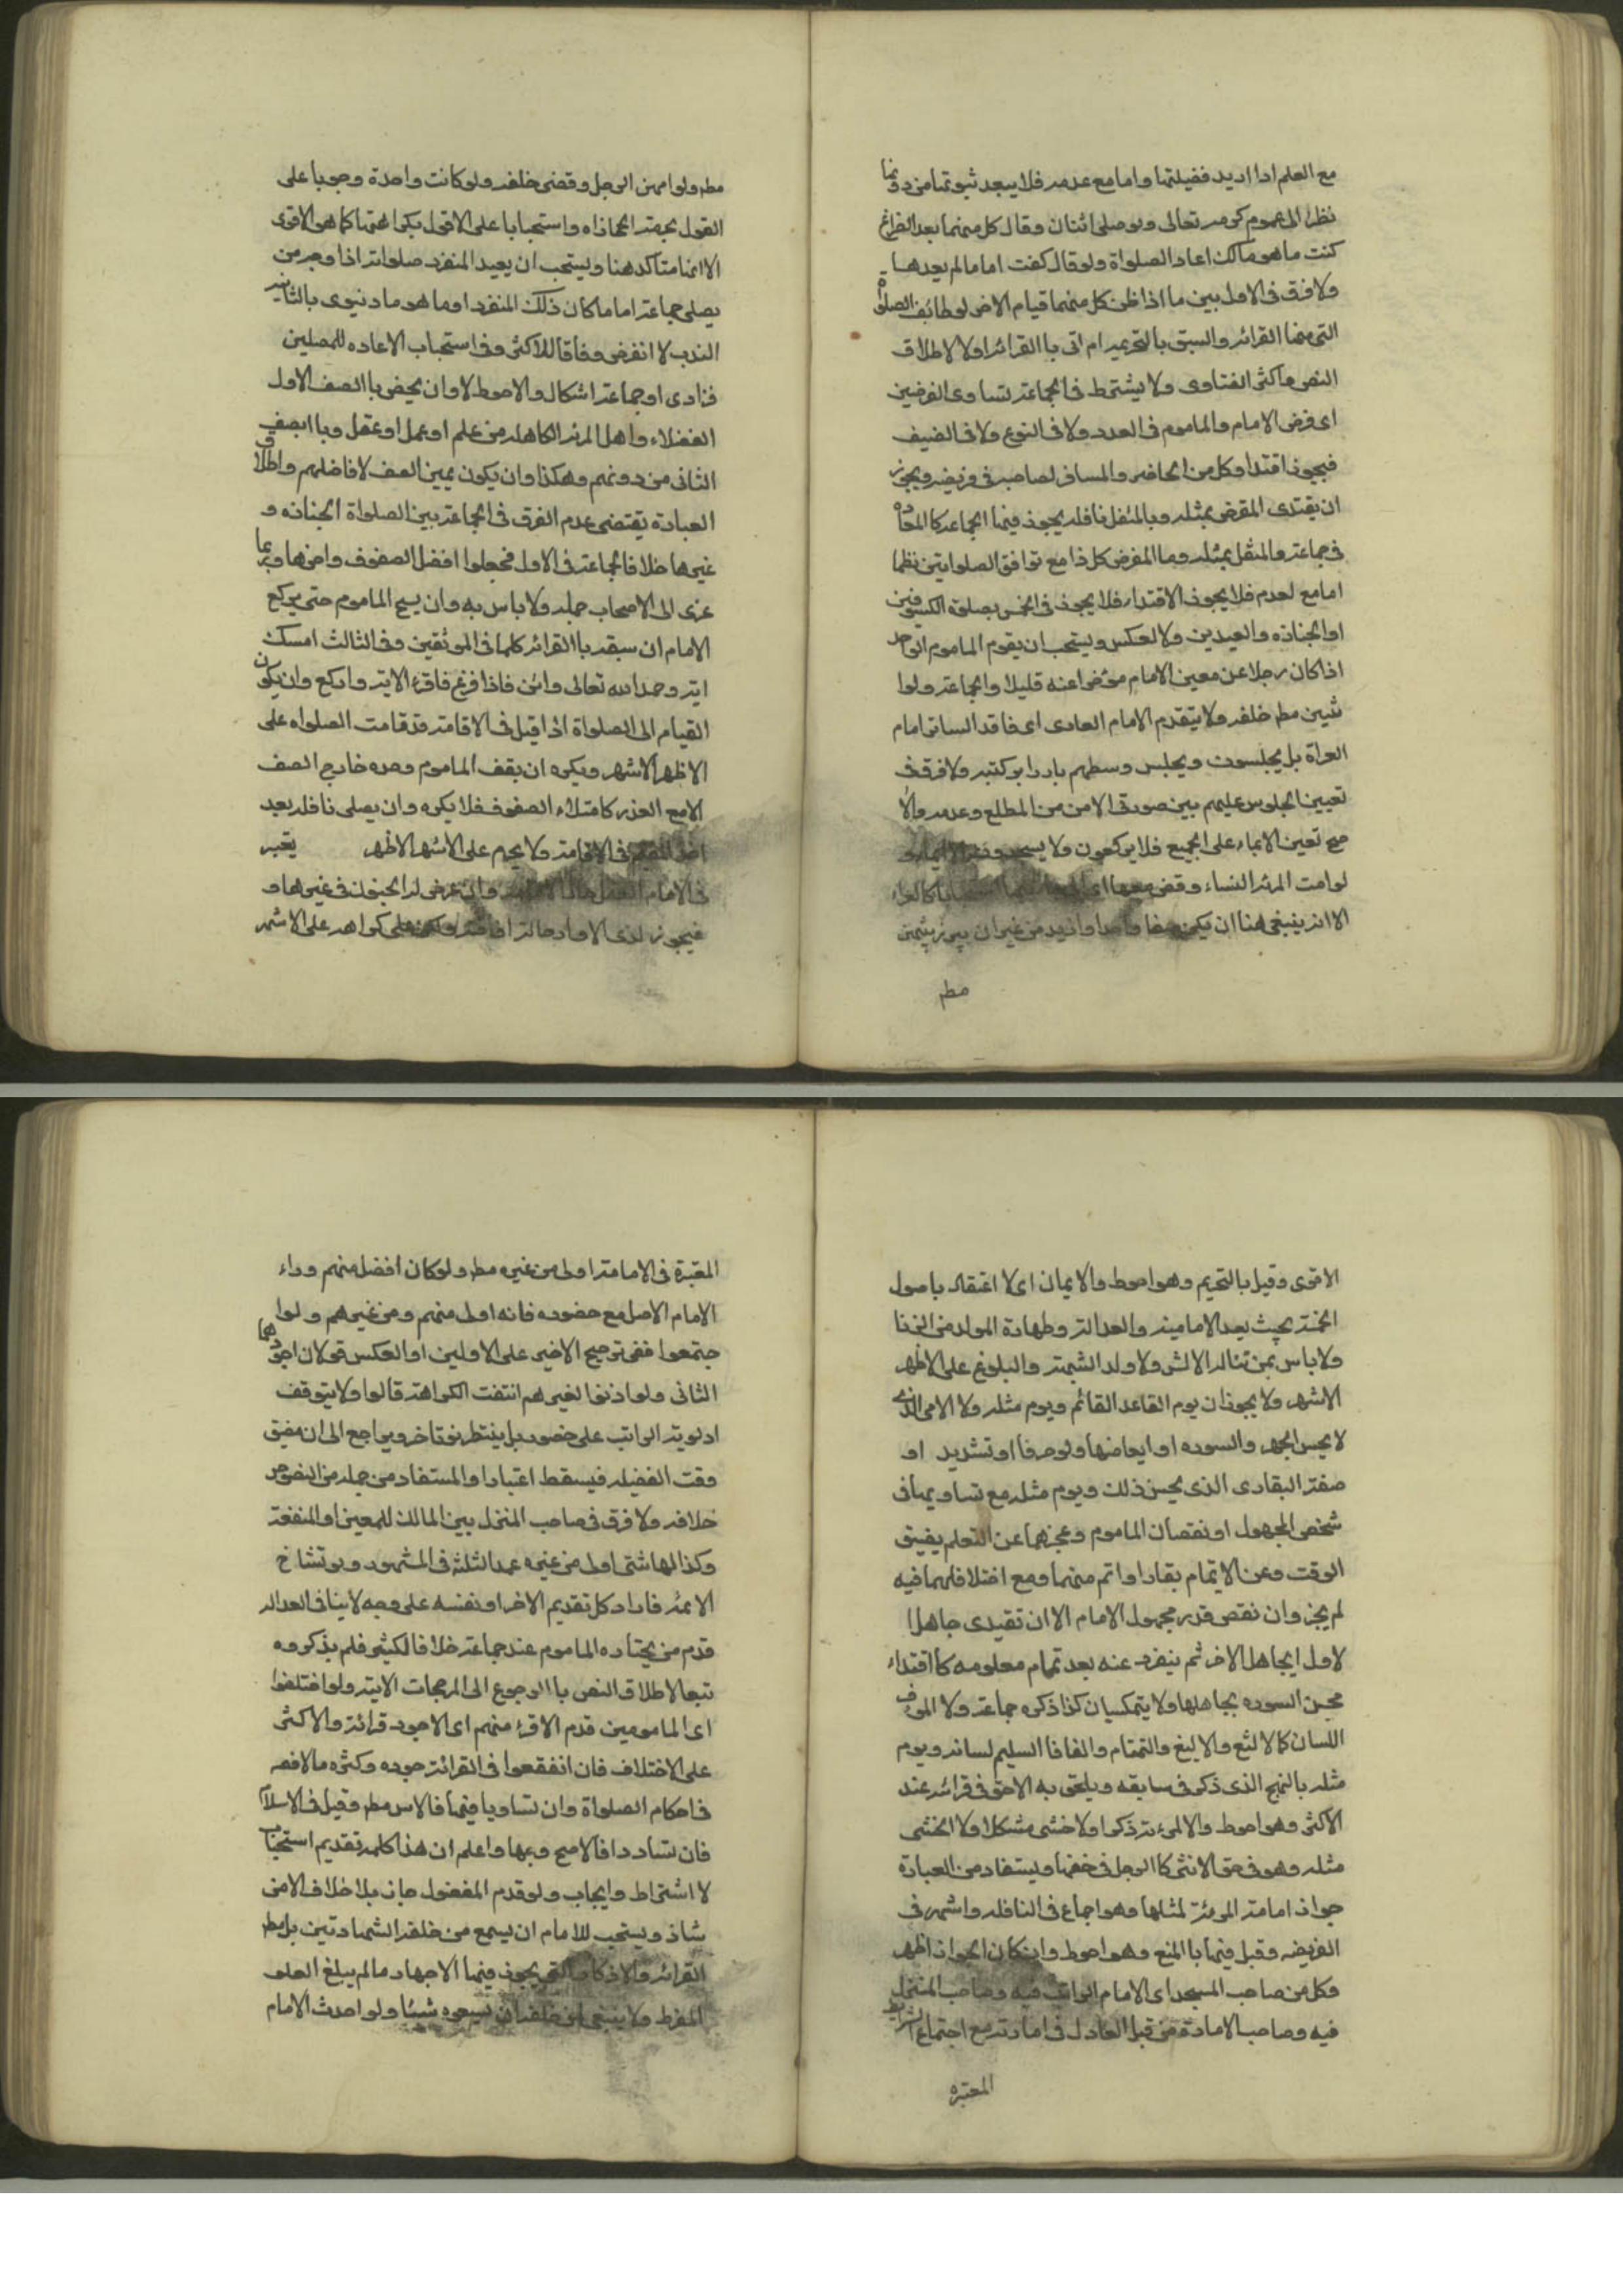 مع العلم اذا اريد فضيلتها واما مع عدمه فلا يبعد ثبوتها من دونها
نظرا الى عموم كرمه تعالى ولو صلى اثنان وقال كل منهما بعد الفراغ
كنت ماهوما لك اعاد الصلواة ولو قال كفت اماما لم يعدها
ولا فرق فى الاول بين ما اذا ظن كل منهما قيام الاخر لوظائف الصلواة
التى منها القرائه والسبق بالتحريمه ام اتى باالقرائه اولا لاطلاق
النص واكثر الفتاوى ولا يشترط فى الجماعته تساوى الفرضين
اى فرض الامام والماموم فى العدد ولا فى النوع ولا فى الضيف
فيجوز اقتداء كل من الحاضر والمسافر لصاحبه فى فريضه ويجوز
ان يقتدى المفرض بمثله وبالمتفل نافله يجوز فيها الجماعه كالمعاده
فى جماعته والمتفل بمثله وما المفرض كل ذا مع توافق الصلواتين نظما
امامع لعدم فلا يجوز الاقتداء فلا يجوز فى الخمس بصلوة الكسوفين
اوالجنازه والعيدين ولا العكس ويستحب ان يقوم الماموم الواحد
اذا كان رجلا عن معين الامام موخرا عنه قليلا والجماعته ولوا
ثنين مطم خلفه ولا يتقدم الامام العارى اى فاقد الساتر امام
العراة بل يجلسون ويجلس وسطهم بارزا بركتبه ولا فرق فى
تعيين الجلوس عليهم بين صورتى الامن من المطلع وعدمه والا
صح تعين الايماء على الجميع فلا يركعون ولا يسجدون
لوامت المرئه النساء وقفن معها
الا انه ينبغى هنا ان يكن صفا واحدا وازيد من غير ان يبرز بينهن
مطم
مطم ولوامهن الرجل وقفن خلفه ولو كانت واحدة وجوبا على
القول بحرمة المحاذاه واستحبابا على الاقول بكراهتها كما هو الاقوى
الا انها متاكد هنا ويستحب ان يعيد المنفرد صلواته اذا وجد من
يصلى جماعته اماما كان ذلك المنفرد اوما هوما دنيوى بالثانيه
الندب لا الفرض وفاقا للاكثر وفى استحباب الاعاده للمصلين
فرادى او جماعته اشكال والاحوط لا وان يخص باالصف الاول
الفضلاء واهل المزيه الكاهله من علم او عمل او عقل وباا لصف
الثانى من دونهم وهكذا وان يكون يمين الصف لافاضلهم واطلاق
العبادة يقتضى عدم الفرق فى الجماعته بين الصلواة الجنازه و
غيرها خلافا لجماعته فى الاول فجعلوا افضل الصفوف واخرها وربما
عزى الى الاصحاب جمله ولا باس به وان يسبح الماموم حتى يركع
الامام ان سبقه باالقرائه كلما فى الموثقين وفى الثالث امسك
ايته وحمد الله تعالى واثن فاذا فرغ فاقرء الايته واركع وان يكون
القيام الى الصلواة اذا قيل فى الاقامته قد قامت الصلواه على
الاظهر الاشهر ويكره ان يقف الماموم وحده خارج الصف
الا مع العذر كامتلاء الصفوف فلا يكره وان يصلى نافله بعد
اخذ المقيم فى الاقامته ولا يحرم على الاشهر الاظهر يعتبر
فى الامام العقل حال الامامته وان عرض له الجنون فى غيرها و
فيجوز لذى الادوار حالته افاقته ولكن على كراهه على الاشهر
الاقوى وقيل بالتحريم وهو احوط والايمان اى لا اعتقاد باصول
الخمسته بحيث يعد الاماميته والعدالته وطهارة المولد من الزنا
ولا باس بمن تناله الالسن ولا ولد الشبهته والبلوغ على الاظهر
الاشهر ولا يجوز ان يوم القاعد القائم ويوم مثله ولا الامى الذى
لا يحسن الجهر والسوره او ابعاضها ولو حرفا او تشديد او
صفته البقارى الذى يحسن ذلك ويوم مثله مع تساويهما فى
شخص المجهول او نقصان الماموم وعجزهما عن التعلم يضيق
الوقت وعن الايتمام بقارا واتم منهما ومع اختلافهما فيه
لم يجز وان نقص قدر مجهول الامام الا ان تقيدى جاهل ا
لاول ايجاهل الاخر ثم ينفرد عنه بعد تمام معلومه كااقتداء
محسن السوره بجاهلها ولا يتمكسيان كذا ذكره جماعته ولا الموف
اللسان كالالثغ والاليغ والتمتام والفافاا لسليم لسانه ويوم
مثله بالنهج الذى ذكر فى سابقه ويلحق به الاحق فى قرائه عند
الاكثر وهو احوط والالموءته ذكرا ولا خنثى مشكلا ولا الخنثى
مثله وهو فى حق الانثى كاالرجل فى حقها ويستفاد من العبادة
جواز امامته المرئته لمثلها وهو اجماع فى النافله واشهر فى
الفريضه وقيل فيها باالمنع وهو احوط وان كان الجواز اظهر
وكل من صاحب المسجد اى الامام الراتب فيه وصاحب المنزل
فيه وصاحب الامارة من قبل العادل فى امارته مع اجتماع الشرايط
المعتبره
المعتبرة فى الامامته اولى من غيره مطم ولو كان افضل منهم وراء
الامام الاصل مع حضوره فانه اولى منهم ومن غيرهم ولوا
جتمعوا ففى ترجيح الاخير على الاولين او العكس قولان اجودهما
الثانى ولو اذنوا لغيرهم انتفت الكراهته قالوا ولا يتوقف
اولويته الراتب على حضوره بل ينتظر لو تاخر ويراجع الى ان مضيق
وقت الفضيله فيسقط اعتبارا والمستفاد من جمله من النصوص
خلافه ولا فرق فى صاحب المنزل بين المالك للمعين او المنفعته
وكذا الهاشمى اولى من غيره عمدا لثلثه فى المشهور ولو تشاح
الائمه فاراد كل تقديم الاخر او نفسه على وجه لاينافى العداله
قدم من يختاره الماموم عند جماعته خلافا لكثير فلم يذكروه
تبعا لاطلاق النص باالرجوع الى المرجحات الايته ولو اختلفوا
اى المامومين قدم الاقرء منهم اى الاجود قرائته والاكثر
على الاختلاف فان انفقعوا فى القرائته جوده وكثره مالافصه
فى احكام الصلواة وان تساويا فيها فالاسن مطم وقيل فى الاسلام
فان تساودا فالاصبح وجها واعلم ان هذا كلمه تقديم استحباب
لا اشتراط وايجاب ولو قدم المفضول جاز بلا خلاف الامن
شاذ ويستحب للامام ان يسمع من خلفه الشهادتين بل مطم
القرائه والاذكار التى يجوز فيها الاجهار مالم يبلغ العلو
المفرط ولا ينبغى لمن خلفه ان يسمعوه شيئا ولو احدث الامام